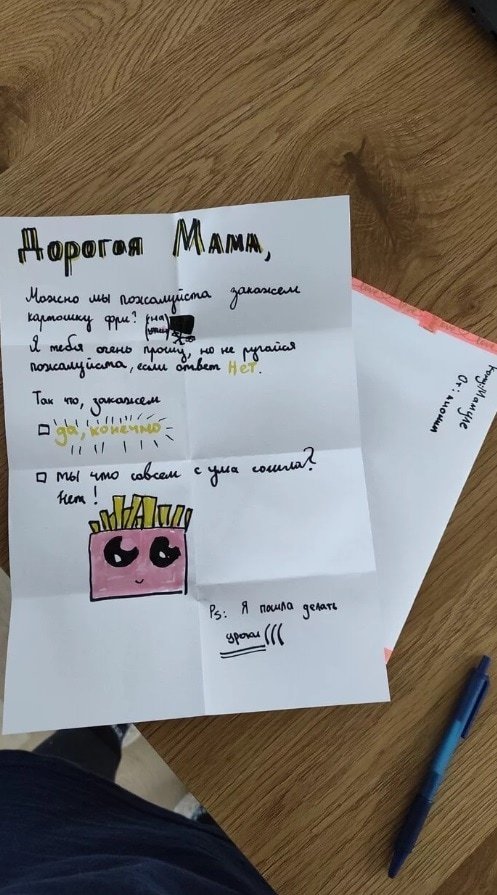 Дорогая Мама,
Можно мы пожалуйста закажем
картошку фри? (на
Я тебя очень прошу, но не ругайся
пожалуйста, если ответ Нет.
Так что, закажем
да, конечно
ты что совсем с ума сошла?
Нет!
Ps: Я пошла делать
уроки(((
Кому: Мамуле
От: